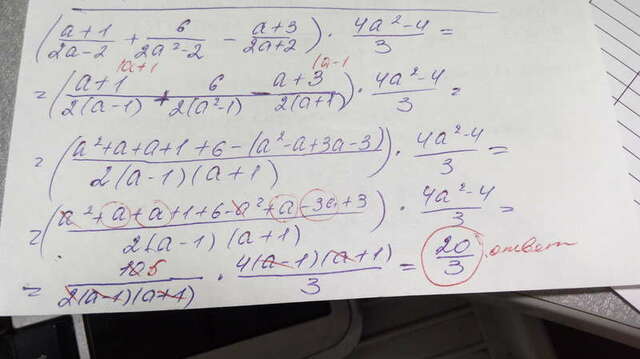 (a+1/2a-2 + 6/2a²-2 - a+3/2a+2) · 4a²-4/3 =
= (a+1/2(a-1) |a+1 + 6/2(a²-1) - a+3/2(a+1) |a-1) · 4a²-4/3 =
= (a²+a+a+1+6-(a²-a+3a-3)/2(a-1)(a+1)) · 4a²-4/3 =
= (a²+a+a+1+6-a²+a-3a+3/2(a-1)(a+1)) · 4a²-4/3 =
= 10 5/2(a-1)(a+1) · 4(a-1)(a+1)/3 = 20/3 ответ